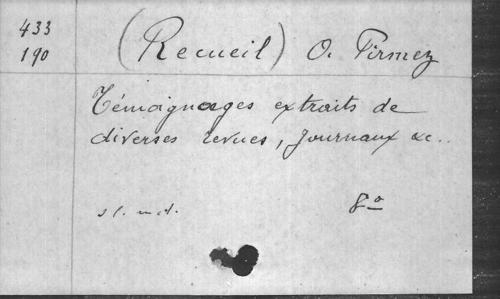 433
190
(Recueil) O. Pirmez
Témoignages extraits de
diverses revues, journaux &c..
s l. n. d. 8º